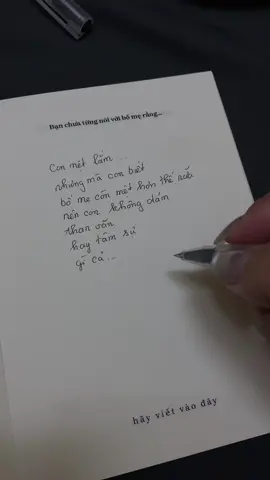 Bạn chưa từng nói với bố mẹ rằng...
Con mệt lắm...
nhưng mà con biết
bố mẹ còn mệt hơn thế nữa
nên con không dám
than vãn
hay tâm sự
gì cả...
hãy viết vào đây